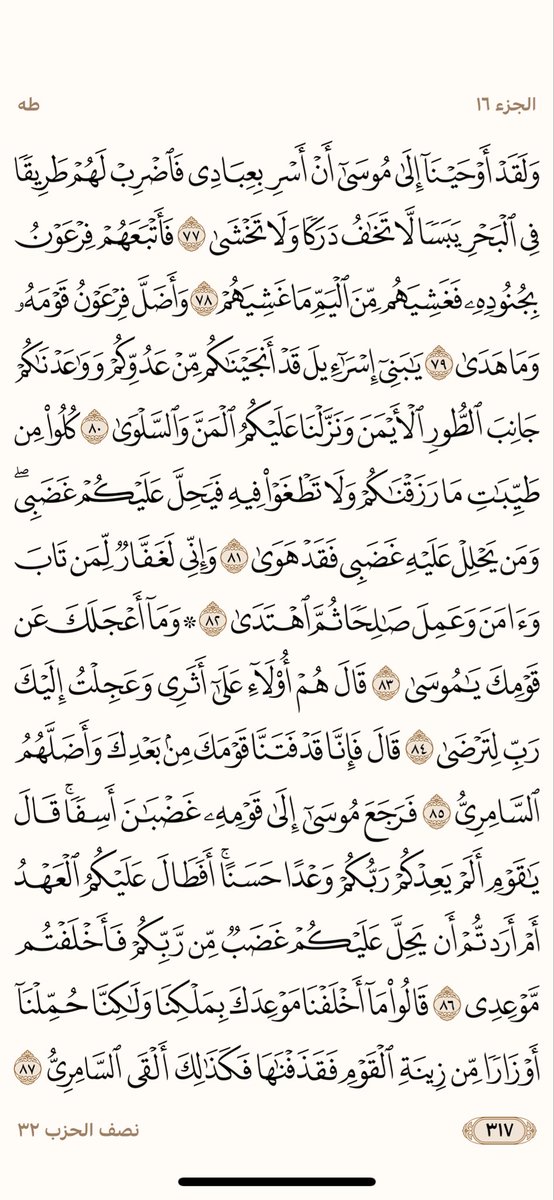 الجزء ١٦
طه
وَلَقَدۡ أَوۡحَيۡنَآ إِلَىٰ مُوسَىٰٓ أَنۡ أَسۡرِ بِعِبَادِي فَٱضۡرِبۡ لَهُمۡ طَرِيقٗا
فِي ٱلۡبَحۡرِ يَبَسٗا لَّا تَخَٰفُ دَرَكٗا وَلَا تَخۡشَىٰ ٧٧ فَأَتۡبَعَهُمۡ فِرۡعَوۡنُ
بِجُنُودِهِۦ فَغَشِيَهُم مِّنَ ٱلۡيَمِّ مَا غَشِيَهُمۡ ٧٨ وَأَضَلَّ فِرۡعَوۡنُ قَوۡمَهُۥ
وَمَا هَدَىٰ ٧٩ يَٰبَنِيٓ إِسۡرَٰٓءِيلَ قَدۡ أَنجَيۡنَٰكُم مِّنۡ عَدُوِّكُمۡ وَوَٰعَدۡنَٰكُمۡ
جَانِبَ ٱلطُّورِ ٱلۡأَيۡمَنَ وَنَزَّلۡنَا عَلَيۡكُمُ ٱلۡمَنَّ وَٱلسَّلۡوَىٰ ٨٠ كُلُواْ مِن
طَيِّبَٰتِ مَا رَزَقۡنَٰكُمۡ وَلَا تَطۡغَوۡاْ فِيهِ فَيَحِلَّ عَلَيۡكُمۡ غَضَبِيۖ
وَمَن يَحۡلِلۡ عَلَيۡهِ غَضَبِي فَقَدۡ هَوَىٰ ٨١ وَإِنِّي لَغَفَّارٞ لِّمَن تَابَ
وَءَامَنَ وَعَمِلَ صَٰلِحٗا ثُمَّ ٱهۡتَدَىٰ ٨٢ ۞ وَمَآ أَعۡجَلَكَ عَن
قَوۡمِكَ يَٰمُوسَىٰ ٨٣ قَالَ هُمۡ أُوْلَآءِ عَلَىٰٓ أَثَرِي وَعَجِلۡتُ إِلَيۡكَ
رَبِّ لِتَرۡضَىٰ ٨٤ قَالَ فَإِنَّا قَدۡ فَتَنَّا قَوۡمَكَ مِنۢ بَعۡدِكَ وَأَضَلَّهُمُ
ٱلسَّامِرِيُّ ٨٥ فَرَجَعَ مُوسَىٰٓ إِلَىٰ قَوۡمِهِۦ غَضۡبَٰنَ أَسِفٗاۚ قَالَ
يَٰقَوۡمِ أَلَمۡ يَعِدۡكُمۡ رَبُّكُمۡ وَعۡدًا حَسَنًاۚ أَفَطَالَ عَلَيۡكُمُ ٱلۡعَهۡدُ
أَمۡ أَرَدتُّمۡ أَن يَحِلَّ عَلَيۡكُمۡ غَضَبٞ مِّن رَّبِّكُمۡ فَأَخۡلَفۡتُم
مَّوۡعِدِي ٨٦ قَالُواْ مَآ أَخۡلَفۡنَا مَوۡعِدَكَ بِمَلۡكِنَا وَلَٰكِنَّا حُمِّلۡنَآ
أَوۡزَارٗا مِّن زِينَةِ ٱلۡقَوۡمِ فَقَذَفۡنَٰهَا فَكَذَٰلِكَ أَلۡقَى ٱلسَّامِرِيُّ ٨٧
٣١٧
نصف الحزب ٣٢